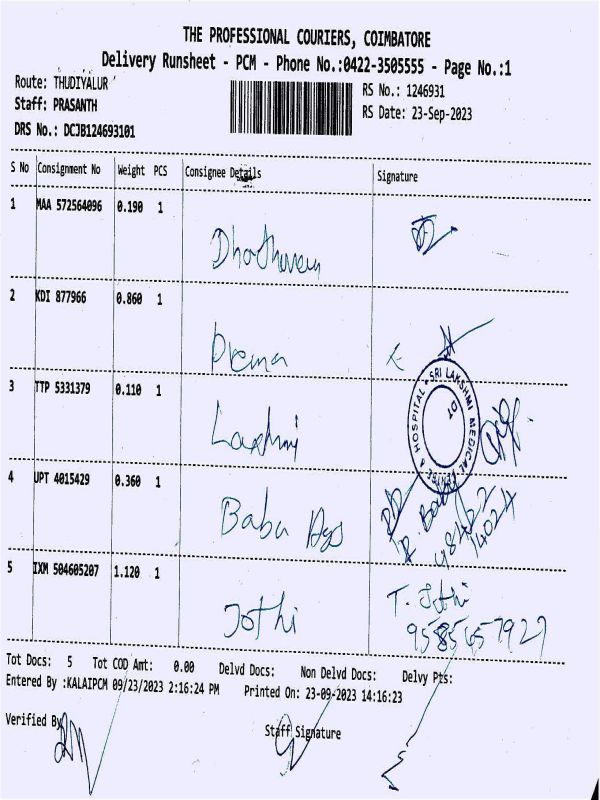 THE PROFESSIONAL COURIERS, COIMBATORE
Delivery Runsheet - PCM - Phone No.:0422-3505555 - Page No.:1
Route: THUDIYALUR
RS No.: 1246931
Staff: PRASANTH
RS Date: 23-Sep-2023
DRS No.: DCJB124693101
S No Consignment No Weight PCS Consignee Details Signature
1 MAA 572564096 0.190 1
2 KDI 877966 0.860 1
Prema
3 TTP 5331379 0.110 1
SRI LAKSHMI MEDICAL CENTRE & HOSPITAL
Laxhmi
4 UPT 4015429 0.360 1
Babu Ags
5 IXM 504605207 1.120 1
T. Jothi
Jothi
Tot Docs: 5 Tot COD Amt: 0.00 Delvd Docs: Non Delvd Docs: Delvy Pts:
Entered By :KALAIPCM 09/23/2023 2:16:24 PM Printed On: 23-09-2023 14:16:23
Verified By
Staff Signature